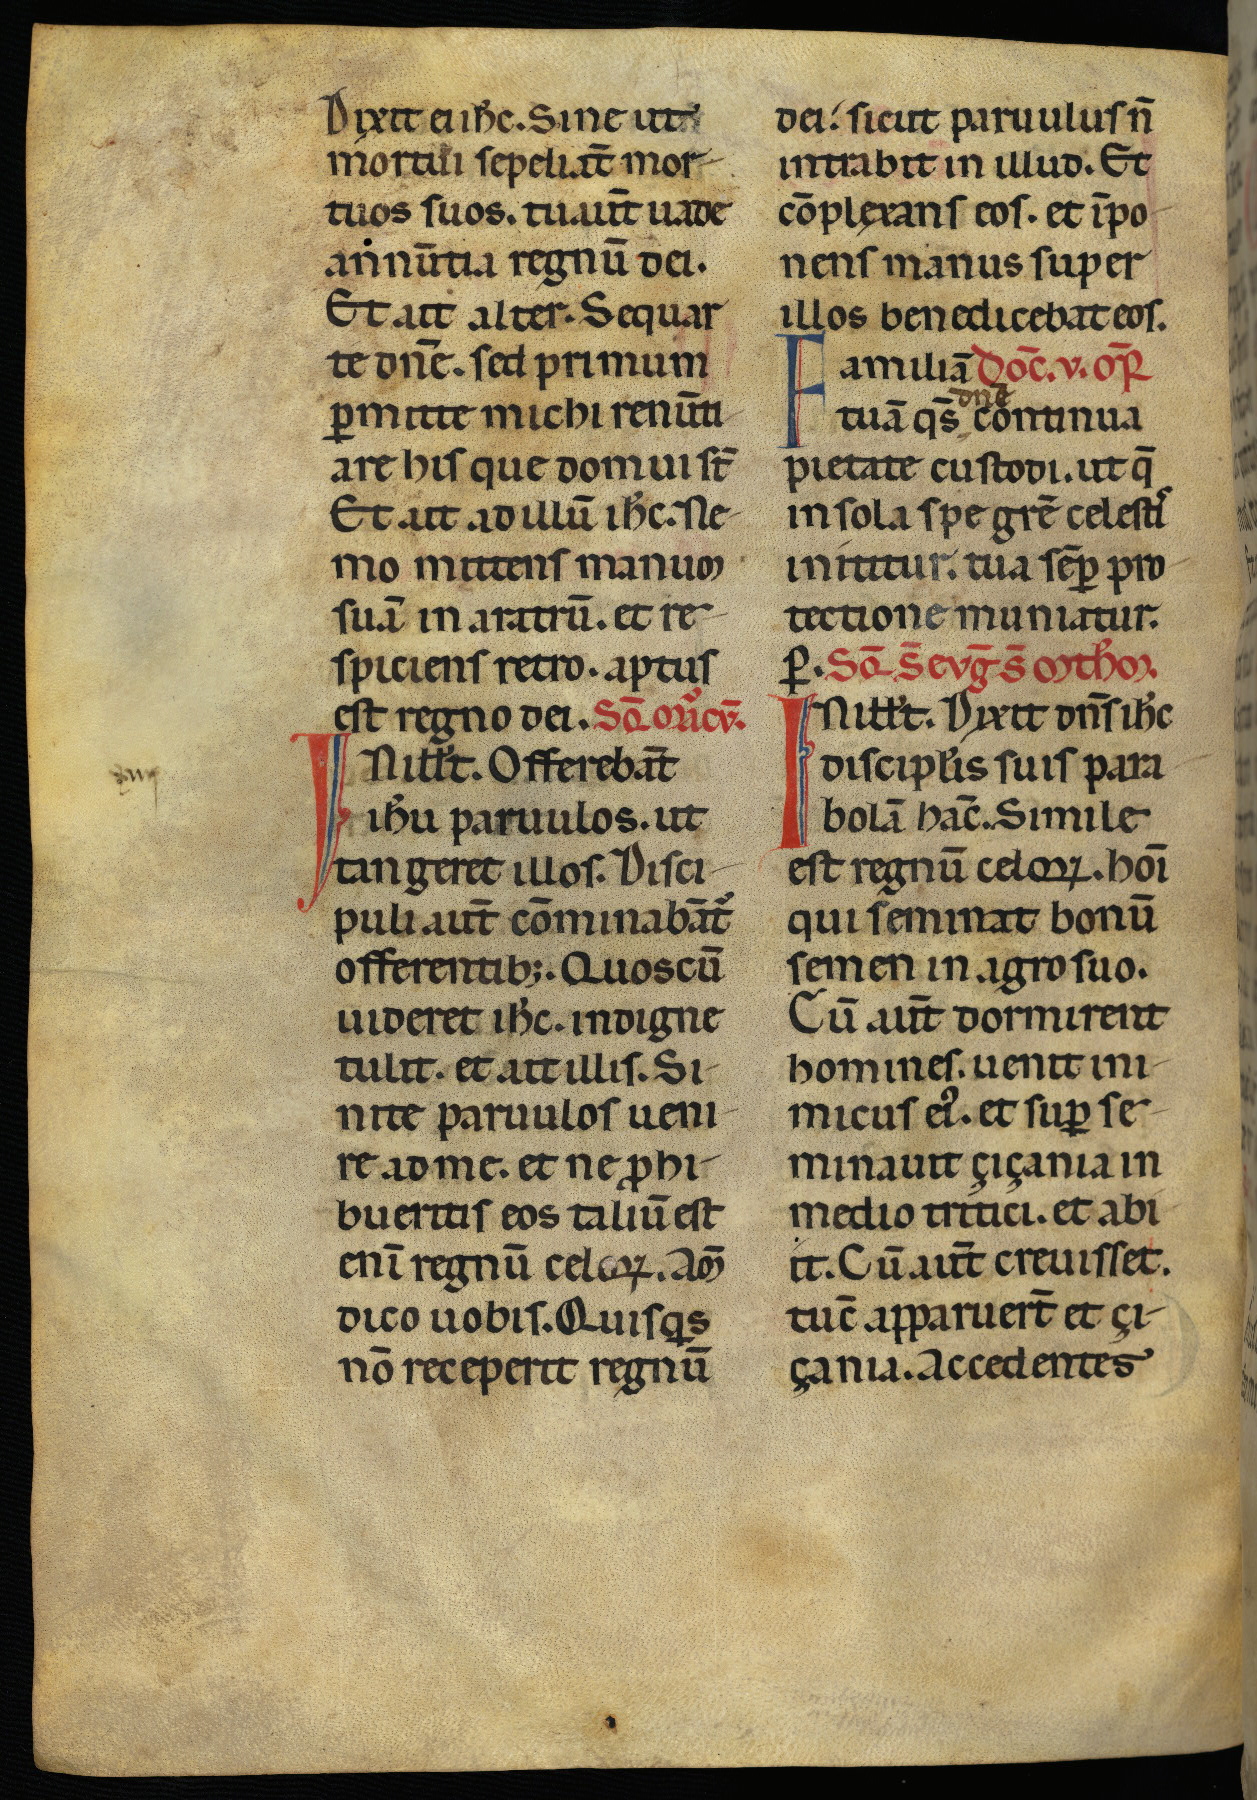 Dixit ei ih̅c. Sine ut
mortui sepeliāt mor-
tuos suos. tu aūt uade
annūtia regnū dei.
Et ait alter. Sequar
te dn̄e. sed primum
ꝑmitte michi renūti-
are his que domui st̄
Et ait ad illū ih̅c. Ne-
mo mittens manum
suā in aratrū. et re-
spiciens retro. aptus
est regno dei. Sc̄d̄ Mᷓcū.
IN ill̵ t̵. Offerebāt
ih̅u paruulos. ut
tangeret illos. Disci-
puli aūt cōminabātᷣ
offerentib;. Quos cū
uideret ih̅c. indigne
tulit. et ait illis. Si-
nite paruulos ueni-
re ad me. et ne ꝓhi-
bueritis eos taliū est
enī regnū celoꝝ. Am̄
dico uobis. Quisqͥs
nō receperit regnū
dei. sicut paruulus n̄
intrabit in illud. Et
cōplexans eos. et īpo-
nens manus super
illos benedicebat eos.
Familiā Doc̄. v. oꝶ
tuā qs̄ dn̄e continua
pietate custodi. ut q̄
in sola spe grē celestis
inititur. tua sēꝑ pro-
tectione muniatur.
ꝑ. Sc̄d̄ S̄ evḡ s̄ Mth̅m.
IN ill̵ t̵. Dixit dn̄s ih̅c
discipl̵is suis para-
bolā hāc. Simile
est regnū celoꝝ. hoī
qui seminat bonū
semen in agro suo.
Cū aūt dormirent
homines. uenit ini-
micus eiꝰ. et suꝑ se-
minauit çiçania in
medio tritici. et abi-
it. Cū aūt creuisset.
tūc apparuer̄t et çi-
çania. Accedentes